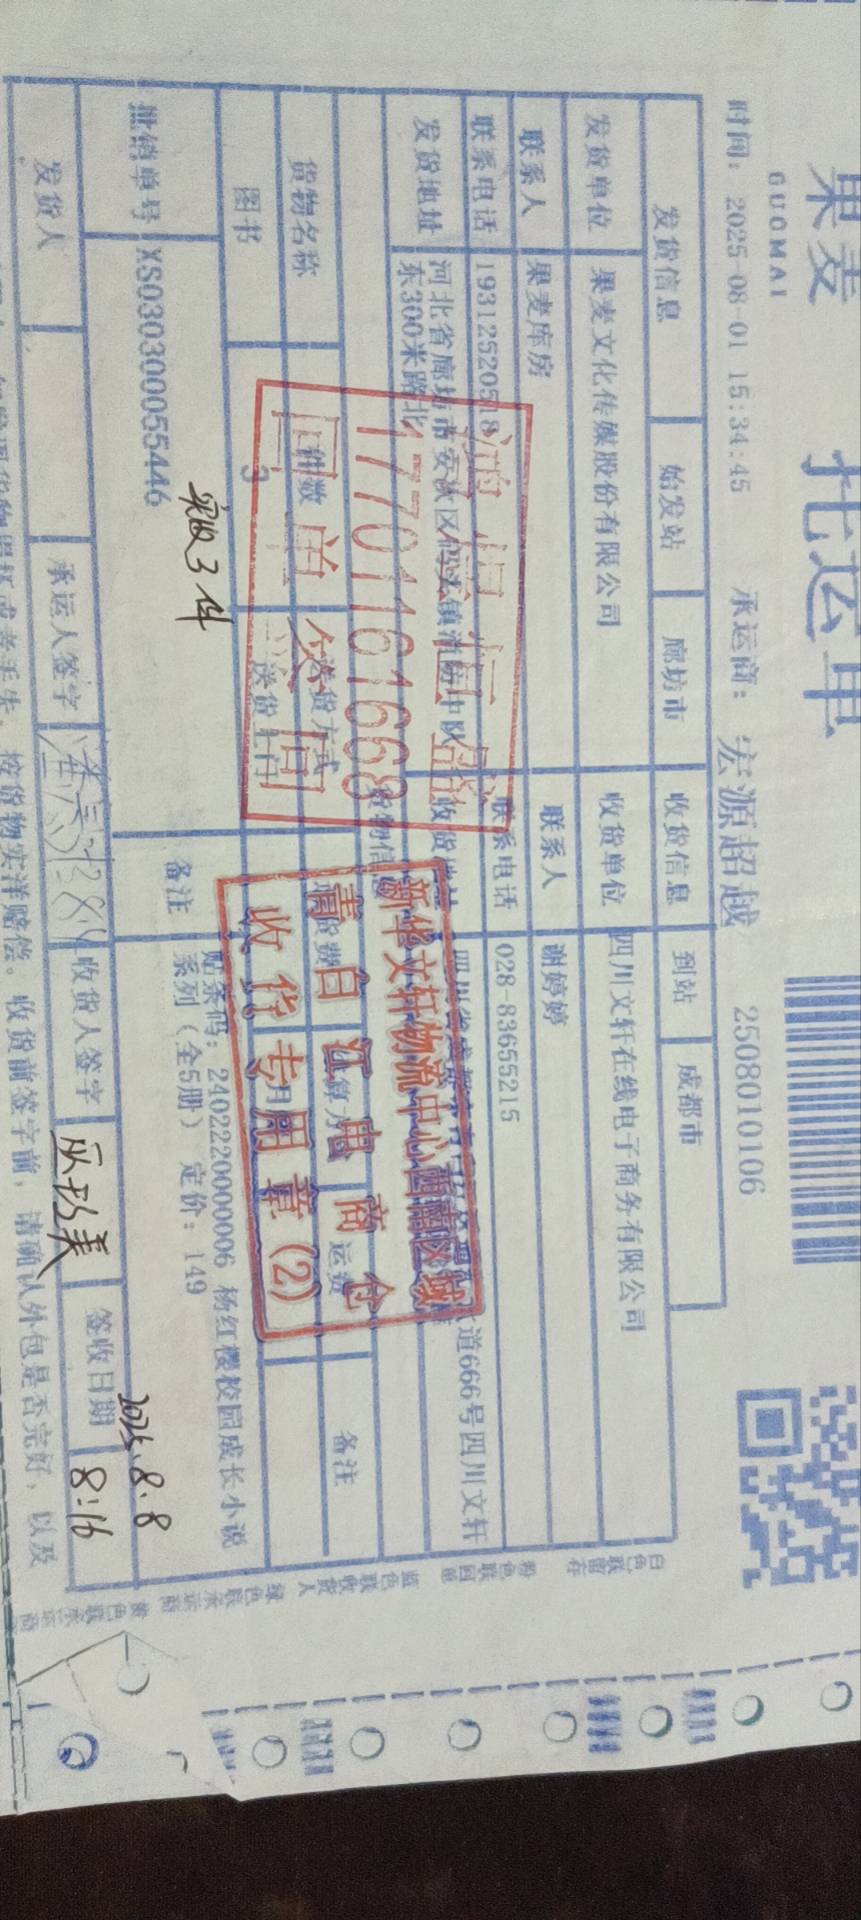 果麦 托运单
GUOMAI
时间: 2025-08-01 15:34:45 承运商: 宏源超越 2508010106
发货信息 始发站 廊坊市 收货信息 到站 成都市
发货单位 果麦文化传媒股份有限公司 收货单位 四川文轩在线电子商务有限公司
联系人 果麦库房 联系人 谢婷婷
联系电话 19312520518 联系电话 028-83655215
发货地址 河北省廊坊市安次区码头镇消防中队 收货地址
东300米路北 道666号四川文轩
货物信息
货物名称 件数 送货方式 运费 备注
图书 3 送货上门 月
批销单号 XS030300055446 备注 贴条码: 2402220000006 杨红樱校园成长小说
系列（全5册） 定价: 149
实收3件
发货人 承运人签字 收货人签字 签收日期 2025.8.8
8:16
17701161668
回单签回
新华文轩物流中心西南区域
青白江电商仓
收货专用章(2)
按货物实洋赔偿。收货前签字前，请确认外包是否完好，以及
白色联留存 粉色联回单 蓝色联收货人 绿色联承运商 黄色联承运商